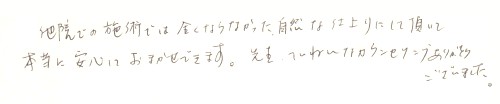 他院での施術では全くならなかった、自然な仕上りにして頂いて
本当に安心しておまかせできます。先生、ていねいなカウンセリングありがとう
ございました。